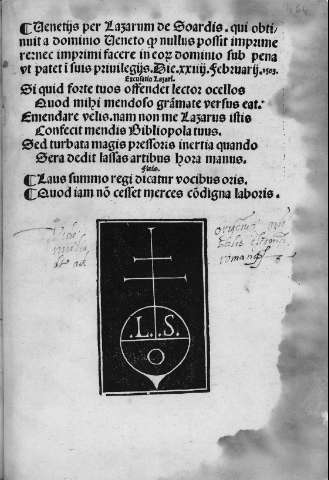 ¶Uenetijs per Lazarum de Soardis. qui obti-
nuit a dominio Ueneto ꝙ nullus possit imprime
re: nec imprimi facere in eoꝝ dominio sub pena
vt patet ĩ suis priuilegijs. Die. xxiiij. Februarij. 1503.
Excusatio Lazari.
Si quid forte tuos offendet lector ocellos
Quod mihi mendoso grãmate versus eat.
Emendare velis. nam non me Lazarus istis
Confecit mendis Bibliopola tuus.
Sed turbata magis pressoris inertia quando
Sera dedit lassas artibus hora manus.
Finis.
¶Laus summo regi dicatur vocibus oris.
¶Quod iam nõ cesset merces cõdigna laboris.
.L. .S.